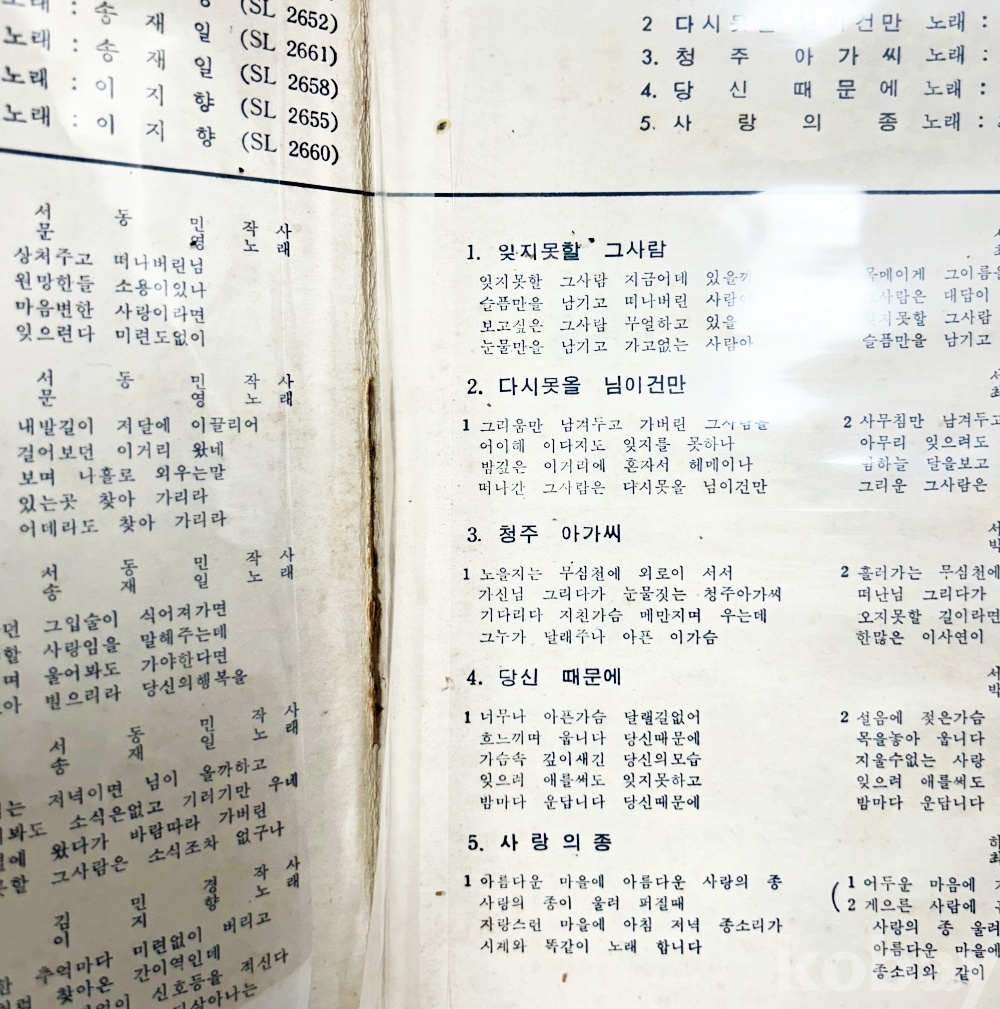 노래 : 송 재 일 (SL 2652)
노래 : 송 재 일 (SL 2661)
노래 : 이 지 향 (SL 2658)
노래 : 이 지 향 (SL 2655)
(SL 2660)
서 동 민 작사
문 영 노래
상처주고 떠나버린님
원망한들 소용이있나
마음변한 사랑이라면
잊으련다 미련도없이
서 동 민 작사
문 영 노래
내발길이 저달에 이끌리어
걸어보던 이거리 왔네
보며 나홀로 외우는말
있는곳 찾아 가리라
어데라도 찾아 가리라
서 동 민 작사
송 재 일 노래
던 그입술이 식어져가면
할 사랑임을 말해주는데
며 울어봐도 가야한다면
아 빌으리라 당신의행복을
서 동 민 작사
송 재 일 노래
는 저녁이면 님이 올까하고
봐도 소식은없고 기러기만 우네
에 왔다가 바람따라 가버린
할 그사람은 소식조차 없구나
김 민 경 작사
이 지 향 노래
한 추억마다 미련없이 버리고
찾아온 간이역인데
신호등을 적신다
2 다시못올 님이건만 노래 :
3. 청 주 아 가 씨 노래 :
4. 당 신 때 문 에 노래 :
5. 사 랑 의 종 노래 :
1. 잊지못할 그사람
잊지못할 그사람 지금어데 있을까
슬픔만을 남기고 떠나버린 사람아
보고싶은 그사람 무얼하고 있을
눈물만을 남기고 가고없는 사람아
목메이게 그이름을
그사람은 대답이
잊지못할 그사람
슬픔만을 남기고
2. 다시못올 님이건만
1 그리움만 남겨두고 가버린 그사람을
어이해 이다지도 잊지를 못하나
밤깊은 이거리에 혼자서 헤메이나
떠나간 그사람은 다시못올 님이건만
2 사무침만 남겨두고
아무리 잊으려도
밤하늘 달을보고
그리운 그사람은
3. 청주 아가씨
1 노을지는 무심천에 외로이 서서
가신님 그리다가 눈물짓는 청주아가씨
기다리다 지친가슴 메만지며 우는데
그누가 달래주나 아픈 이가슴
2 흘러가는 무심천에
떠난님 그리다가
오지못할 길이라면
한많은 이사연이
4. 당신 때문에
1 너무나 아픈가슴 달랠길없어
흐느끼며 웁니다 당신때문에
가슴속 깊이새긴 당신의모습
잊으려 애를써도 잊지못하고
밤마다 운답니다 당신때문에
2 설음에 젖은가슴
목을놓아 웁니다
지울수없는 사랑
잊으려 애를써도
밤마다 운답니다
5. 사 랑 의 종
1 아름다운 마을에 아름다운 사랑의 종
사랑의 종이 울려 퍼질때
자랑스런 마을에 아침 저녁 종소리가
시계와 똑같이 노래 합니다
1 어두운 마음에
2 게으른 사람에
사랑의 종 울려
아름다운 마을에
종소리와 같이
kobay